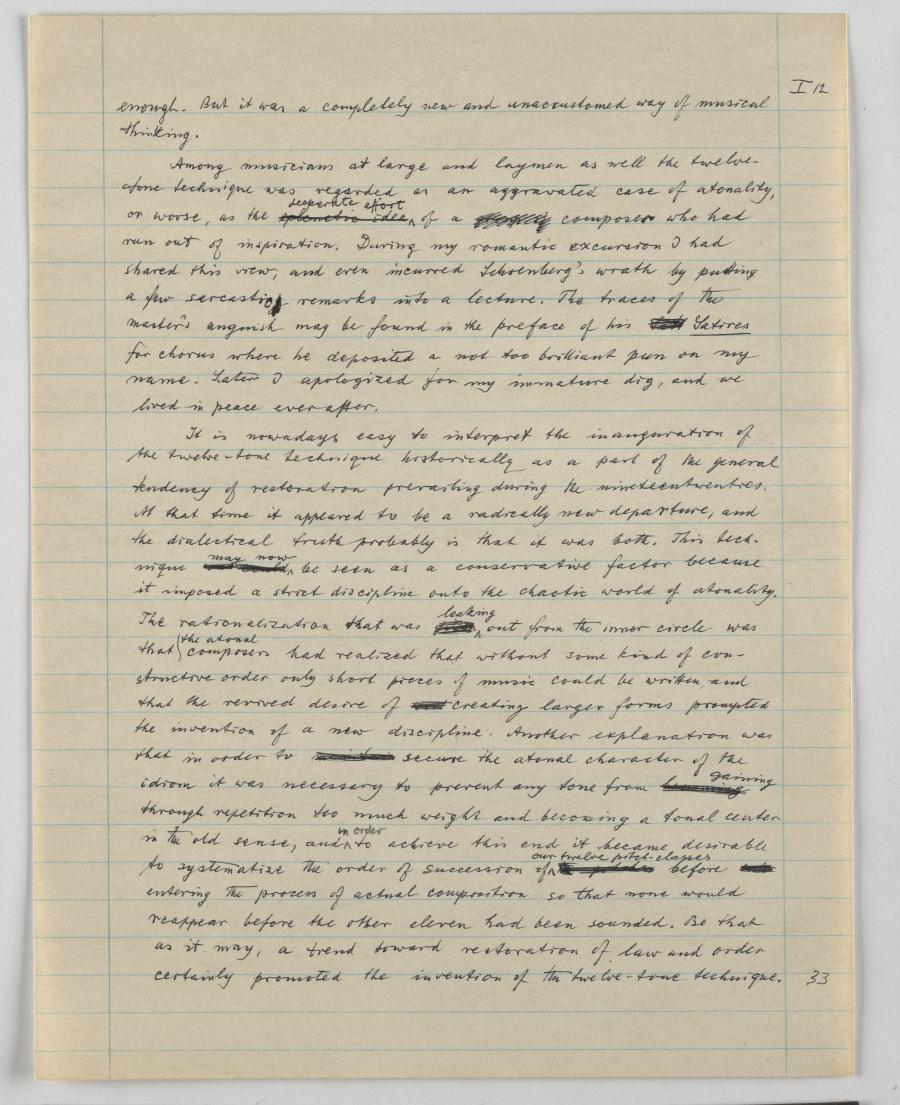 I 12
enough. But it was a completely new and unaccustomed way of musical
thinking.
Among musicians at large and laymen as well the twelve-
tone technique was regarded as an aggravated case of atonality,
desperate effort
or worse, as the splenetic idea of a composer who had
run out of inspiration. During my romantic excursion I had
shared this view, and even incurred Schoenberg's wrath by putting
a few sarcastic remarks into a lecture. The traces of the
master's anguish may be found in the preface of his Satires
for chorus where he deposited a not too brilliant pun on my
name. Later I apologized for my immature dig, and we
lived in peace ever after.
It is nowadays easy to interpret the inauguration of
the twelve-tone technique historically as a part of the general
tendency of restoration prevailing during the nineteentwenties.
At that time it appeared to be a radically new departure, and
the dialectical truth probably is that it was both. This tech-
may now
nique be seen as a conservative factor because
it imposed a strict discipline onto the chaotic world of atonality.
leaking
The rationalization that was out from the inner circle was
the atonal
that composers had realized that without some kind of con-
structive order only short pieces of music could be written, and
that the revived desire of creating larger forms prompted
the invention of a new discipline. Another explanation was
that in order to secure the atonal character of the
gaining
idiom it was necessary to prevent any tone from becoming
through repetition too much weight and becoming a tonal center
in order
in the old sense, and to achieve this end it became desirable
our twelve pitch-classes
to systematize the order of succession of the pitches before
entering the process of actual composition so that none would
reappear before the other eleven had been sounded. Be that
as it may, a trend toward restoration of law and order
certainly promoted the invention of the twelve-tone technique. 33